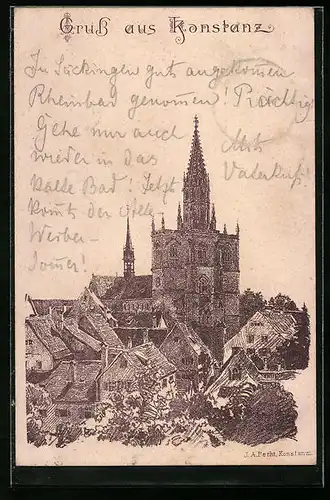 Gruß aus Konstanz
In Säckingen gut angekommen
Rheinbad genommen! Prächtig!
Gehe nur auch
wieder in das
kalte Bad! Jetzt
kommt der Alte
Weiber-
Sommer!
Mit
Vaterkuß!
J. A. Pecht, Konstanz.